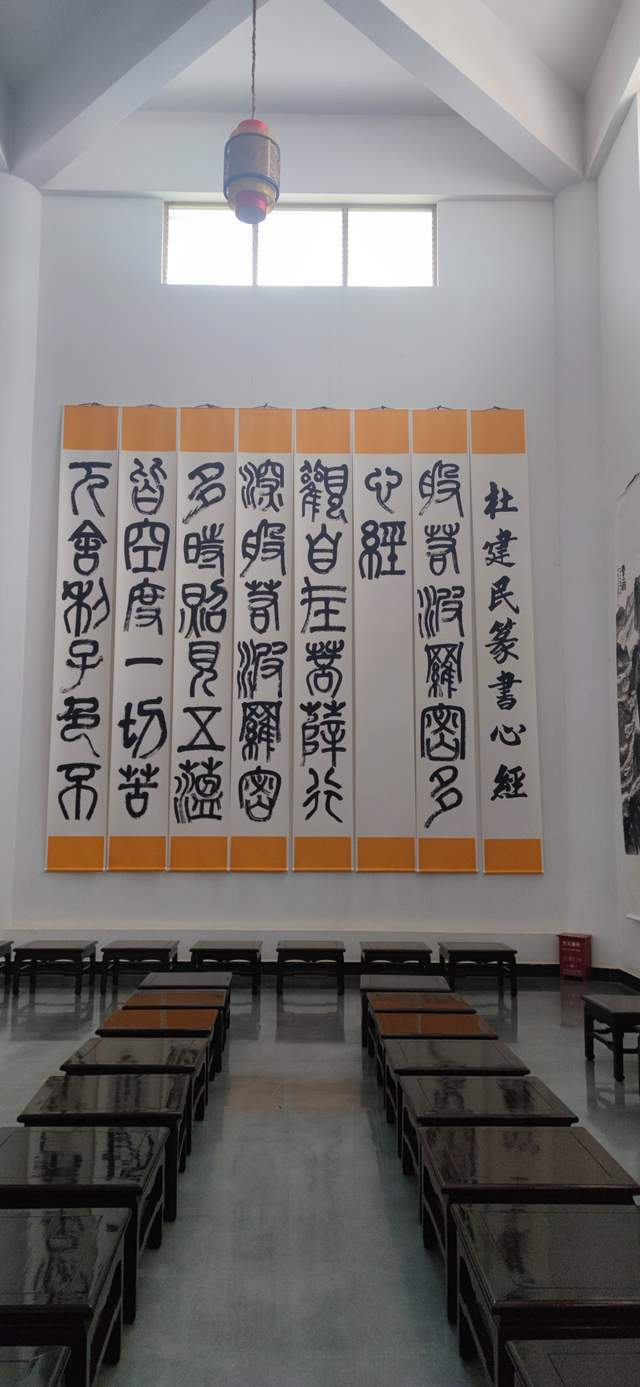 杜建民篆書心經
般若波羅密多
心經
觀自在菩薩行
深般若波羅密
多時照見五蘊
皆空度一切苦
厄舍利子色不